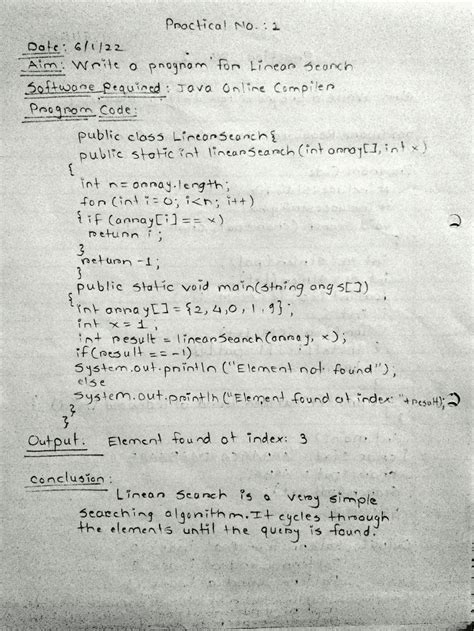 Practical No.: 1
Date: 6/1/22
Aim: Write a program for Linear Search
Software Required: Java Online Compiler
Program Code:
public class LinearSearch{
public static int linearSearch(int array[], int x)
{
int n = array.length;
for (int i=0; i<n; i++)
{ if (array[i] == x)
return i;
}
return -1;
}
public static void main(string args[])
{ int array[] = {2,4,0,1,9};
int x = 1;
int result = linearSearch(array, x);
if(result == -1)
System.out.println ("Element not found");
else
System.out.println ("Element found at index: "+result);
}
}
Output: Element found at index: 3
Conclusion:
Linear Search is a very simple
searching algorithm. It cycles through
the elements until the query is found.